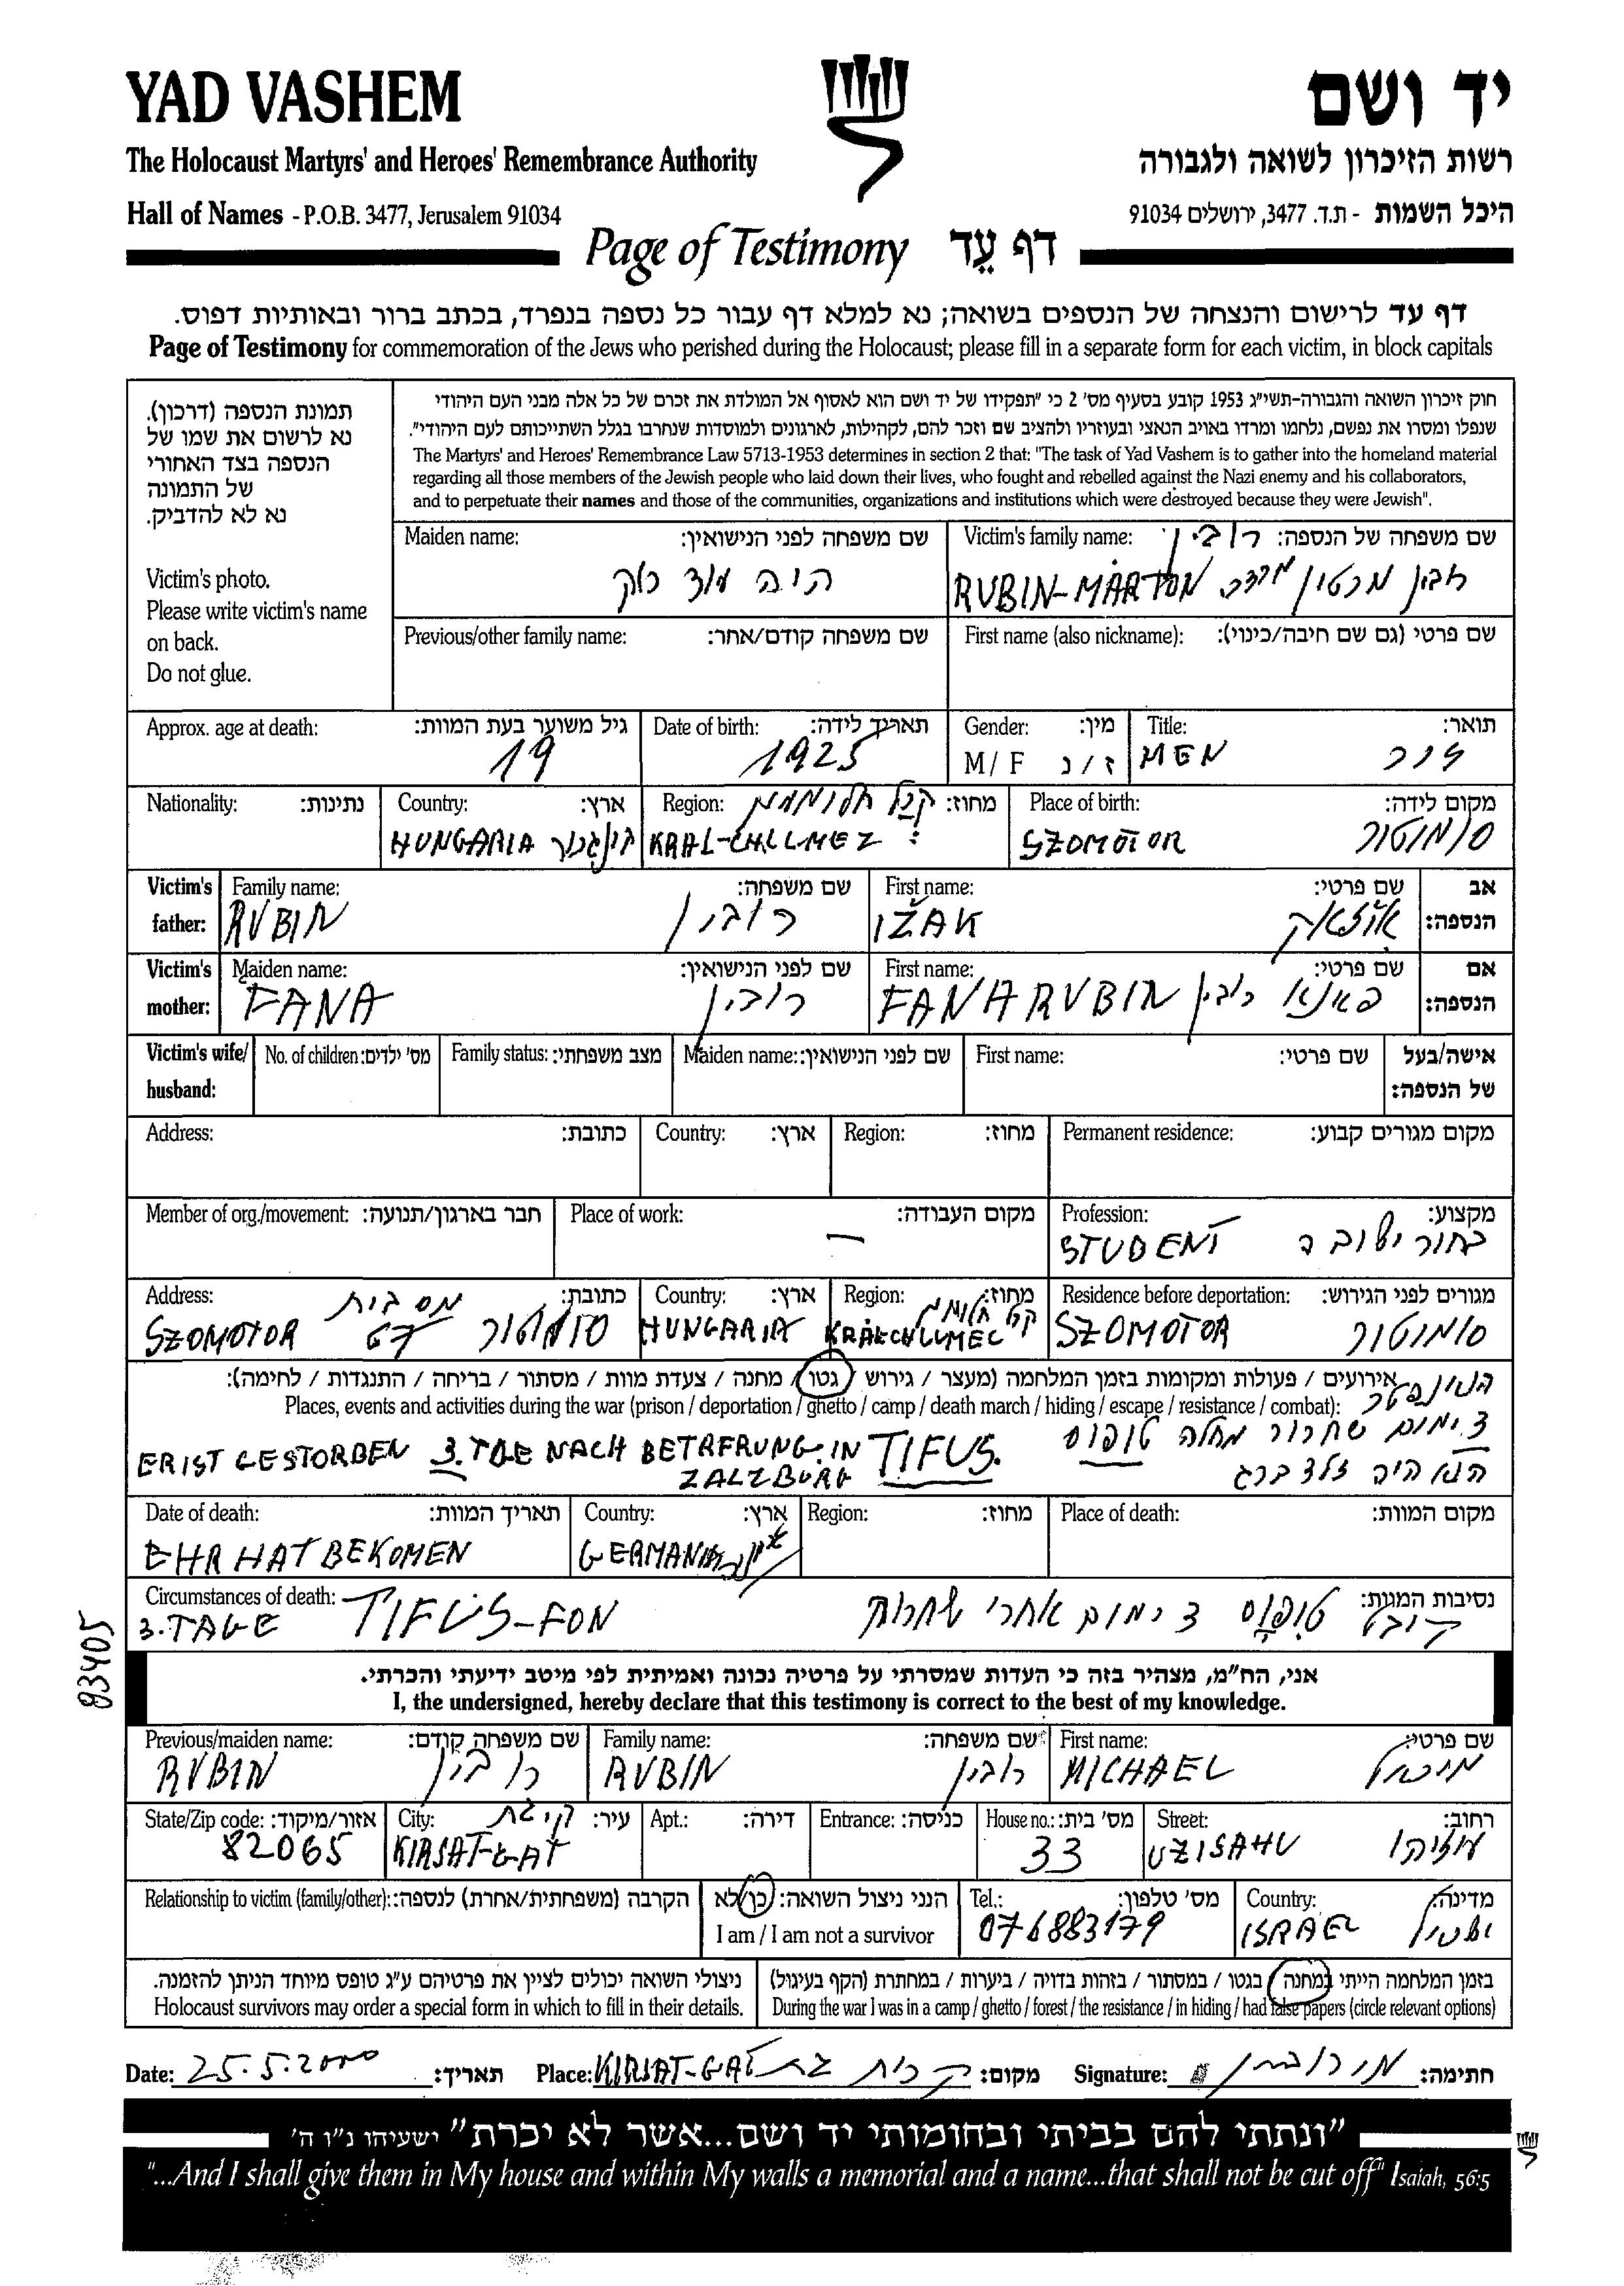 YAD VASHEM
יד ושם
The Holocaust Martyrs' and Heroes' Remembrance Authority
רשות הזיכרון לשואה ולגבורה
Hall of Names - P.O.B. 3477, Jerusalem 91034
היכל השמות - ת.ד. 3477, ירושלים 91034
Page of Testimony דף עֵד
דף עד לרישום והנצחה של הנספים בשואה; נא למלא דף עבור כל נספה בנפרד, בכתב ברור ובאותיות דפוס.
Page of Testimony for commemoration of the Jews who perished during the Holocaust; please fill in a separate form for each victim, in block capitals
תמונת הנספה (דרכון).
נא לרשום את שמו של
הנספה בצד האחורי
של התמונה
נא לא להדביק.
Victim's photo.
Please write victim's name
on back.
Do not glue.
חוק זיכרון השואה והגבורה-תשי"ג 1953 קובע בסעיף מס' 2 כי "תפקידו של יד ושם הוא לאסוף אל המולדת את זכרם של כל אלה מבני העם היהודי
שנפלו ומסרו את נפשם, נלחמו ומרדו באויב הנאצי ובעוזריו ולהציב שם וזכר להם, לקהילות, לארגונים ולמוסדות שנחרבו בגלל השתייכותם לעם היהודי".
The Martyrs' and Heroes' Remembrance Law 5713-1953 determines in section 2 that: "The task of Yad Vashem is to gather into the homeland material
regarding all those members of the Jewish people who laid down their lives, who fought and rebelled against the Nazi enemy and his collaborators,
and to perpetuate their names and those of the communities, organizations and institutions which were destroyed because they were Jewish".
Maiden name: שם משפחה לפני הנישואין:
Victim's family name: שם משפחה של הנספה: רובין
RUBIN-MÁRTON רובין מרטון
Previous/other family name: שם משפחה קודם/אחר:
First name (also nickname): שם פרטי (גם שם חיבה/כינוי):
Approx. age at death: גיל משוער בעת המוות:
19
Date of birth: תאריך לידה:
1925
Gender: מין:
M / F ז / נ
Title: תואר:
MEN
Nationality: נתינות:
Country: ארץ:
HUNGARIA
Region: מחוז:
KRAL-CHLLMEZ
Place of birth: מקום לידה:
SZOMOTOR סומוטור
Victim's father: אב הנספה:
Family name: שם משפחה:
RUBIN רובין
First name: שם פרטי:
IŽAK
Victim's mother: אם הנספה:
Maiden name: שם לפני הנישואין:
FANA רובין
First name: שם פרטי:
FANA RUBIN פאנא רובין
Victim's wife/ husband: אישה/בעל של הנספה:
No. of children: מס' ילדים:
Family status: מצב משפחתי:
Maiden name: שם לפני הנישואין:
First name: שם פרטי:
Address: כתובת:
Country: ארץ:
Region: מחוז:
Permanent residence: מקום מגורים קבוע:
Member of org./movement: חבר בארגון/תנועה:
Place of work: מקום העבודה:
–
Profession: מקצוע:
STUDENT בחור ישיבה
Address: כתובת:
מס בית
SZOMOTOR 67 סומוטור
Country: ארץ:
HUNGARIA
Region: מחוז:
KRÁLCHLUMEC
Residence before deportation: מגורים לפני הגירוש:
SZOMOTOR סומוטור
אירועים / פעולות ומקומות בזמן המלחמה (מעצר / גירוש / גטו / מחנה / צעדת מוות / מסתור / בריחה / התנגדות / לחימה):
Places, events and activities during the war (prison / deportation / ghetto / camp / death march / hiding / escape / resistance / combat):
הוא נפטר
3 ימים שחרור מחלה טיפוס
ER IST GESTORBEN 3. TGE NACH BETAFRUNG. IN TIFUS.
ZALZBURG
הוא היה זלצברג
Date of death: תאריך המוות:
EHR HAT BEKOMEN
Country: ארץ:
GERMANIA
Region: מחוז:
Place of death: מקום המוות:
Circumstances of death: נסיבות המוות:
3. TAGE TIFUS-FON
קיבל טיפוס 3 ימים אחרי שחרור
83405
אני, הח"מ, מצהיר בזה כי העדות שמסרתי על פרטיה נכונה ואמיתית לפי מיטב ידיעתי והכרתי.
I, the undersigned, hereby declare that this testimony is correct to the best of my knowledge.
Previous/maiden name: שם משפחה קודם:
RUBIN רובין
Family name: שם משפחה:
RUBIN רובין
First name: שם פרטי:
MICHAEL מיכאל
State/Zip code: אזור/מיקוד:
82065
City: עיר:
KIRSAT-GAT
Apt.: דירה:
Entrance: כניסה:
House no.: מס' בית:
33
Street: רחוב:
UZISAHU עוזיהו
Relationship to victim (family/other): הקרבה (משפחתית/אחרת) לנספה:
הנני ניצול השואה: כן/לא
I am / I am not a survivor
Tel.: מס' טלפון:
076883179
Country: מדינה:
ISRAEL ישראל
ניצולי השואה יכולים לציין את פרטיהם ע"ג טופס מיוחד הניתן להזמנה.
Holocaust survivors may order a special form in which to fill in their details.
בזמן המלחמה הייתי במחנה / בגטו / במסתור / בזהות בדויה / ביערות / במחתרת (הקף בעיגול)
During the war I was in a camp / ghetto / forest / the resistance / in hiding / had false papers (circle relevant options)
Date: 25.5.2000 תאריך:
Place: KIRIAT-GAT קרית גת מקום:
Signature: חתימה:
"ונתתי להם בביתי ובחומותי יד ושם...אשר לא יכרת" ישעיהו נ"ו ה'
"...And I shall give them in My house and within My walls a memorial and a name...that shall not be cut off" Isaiah, 56:5